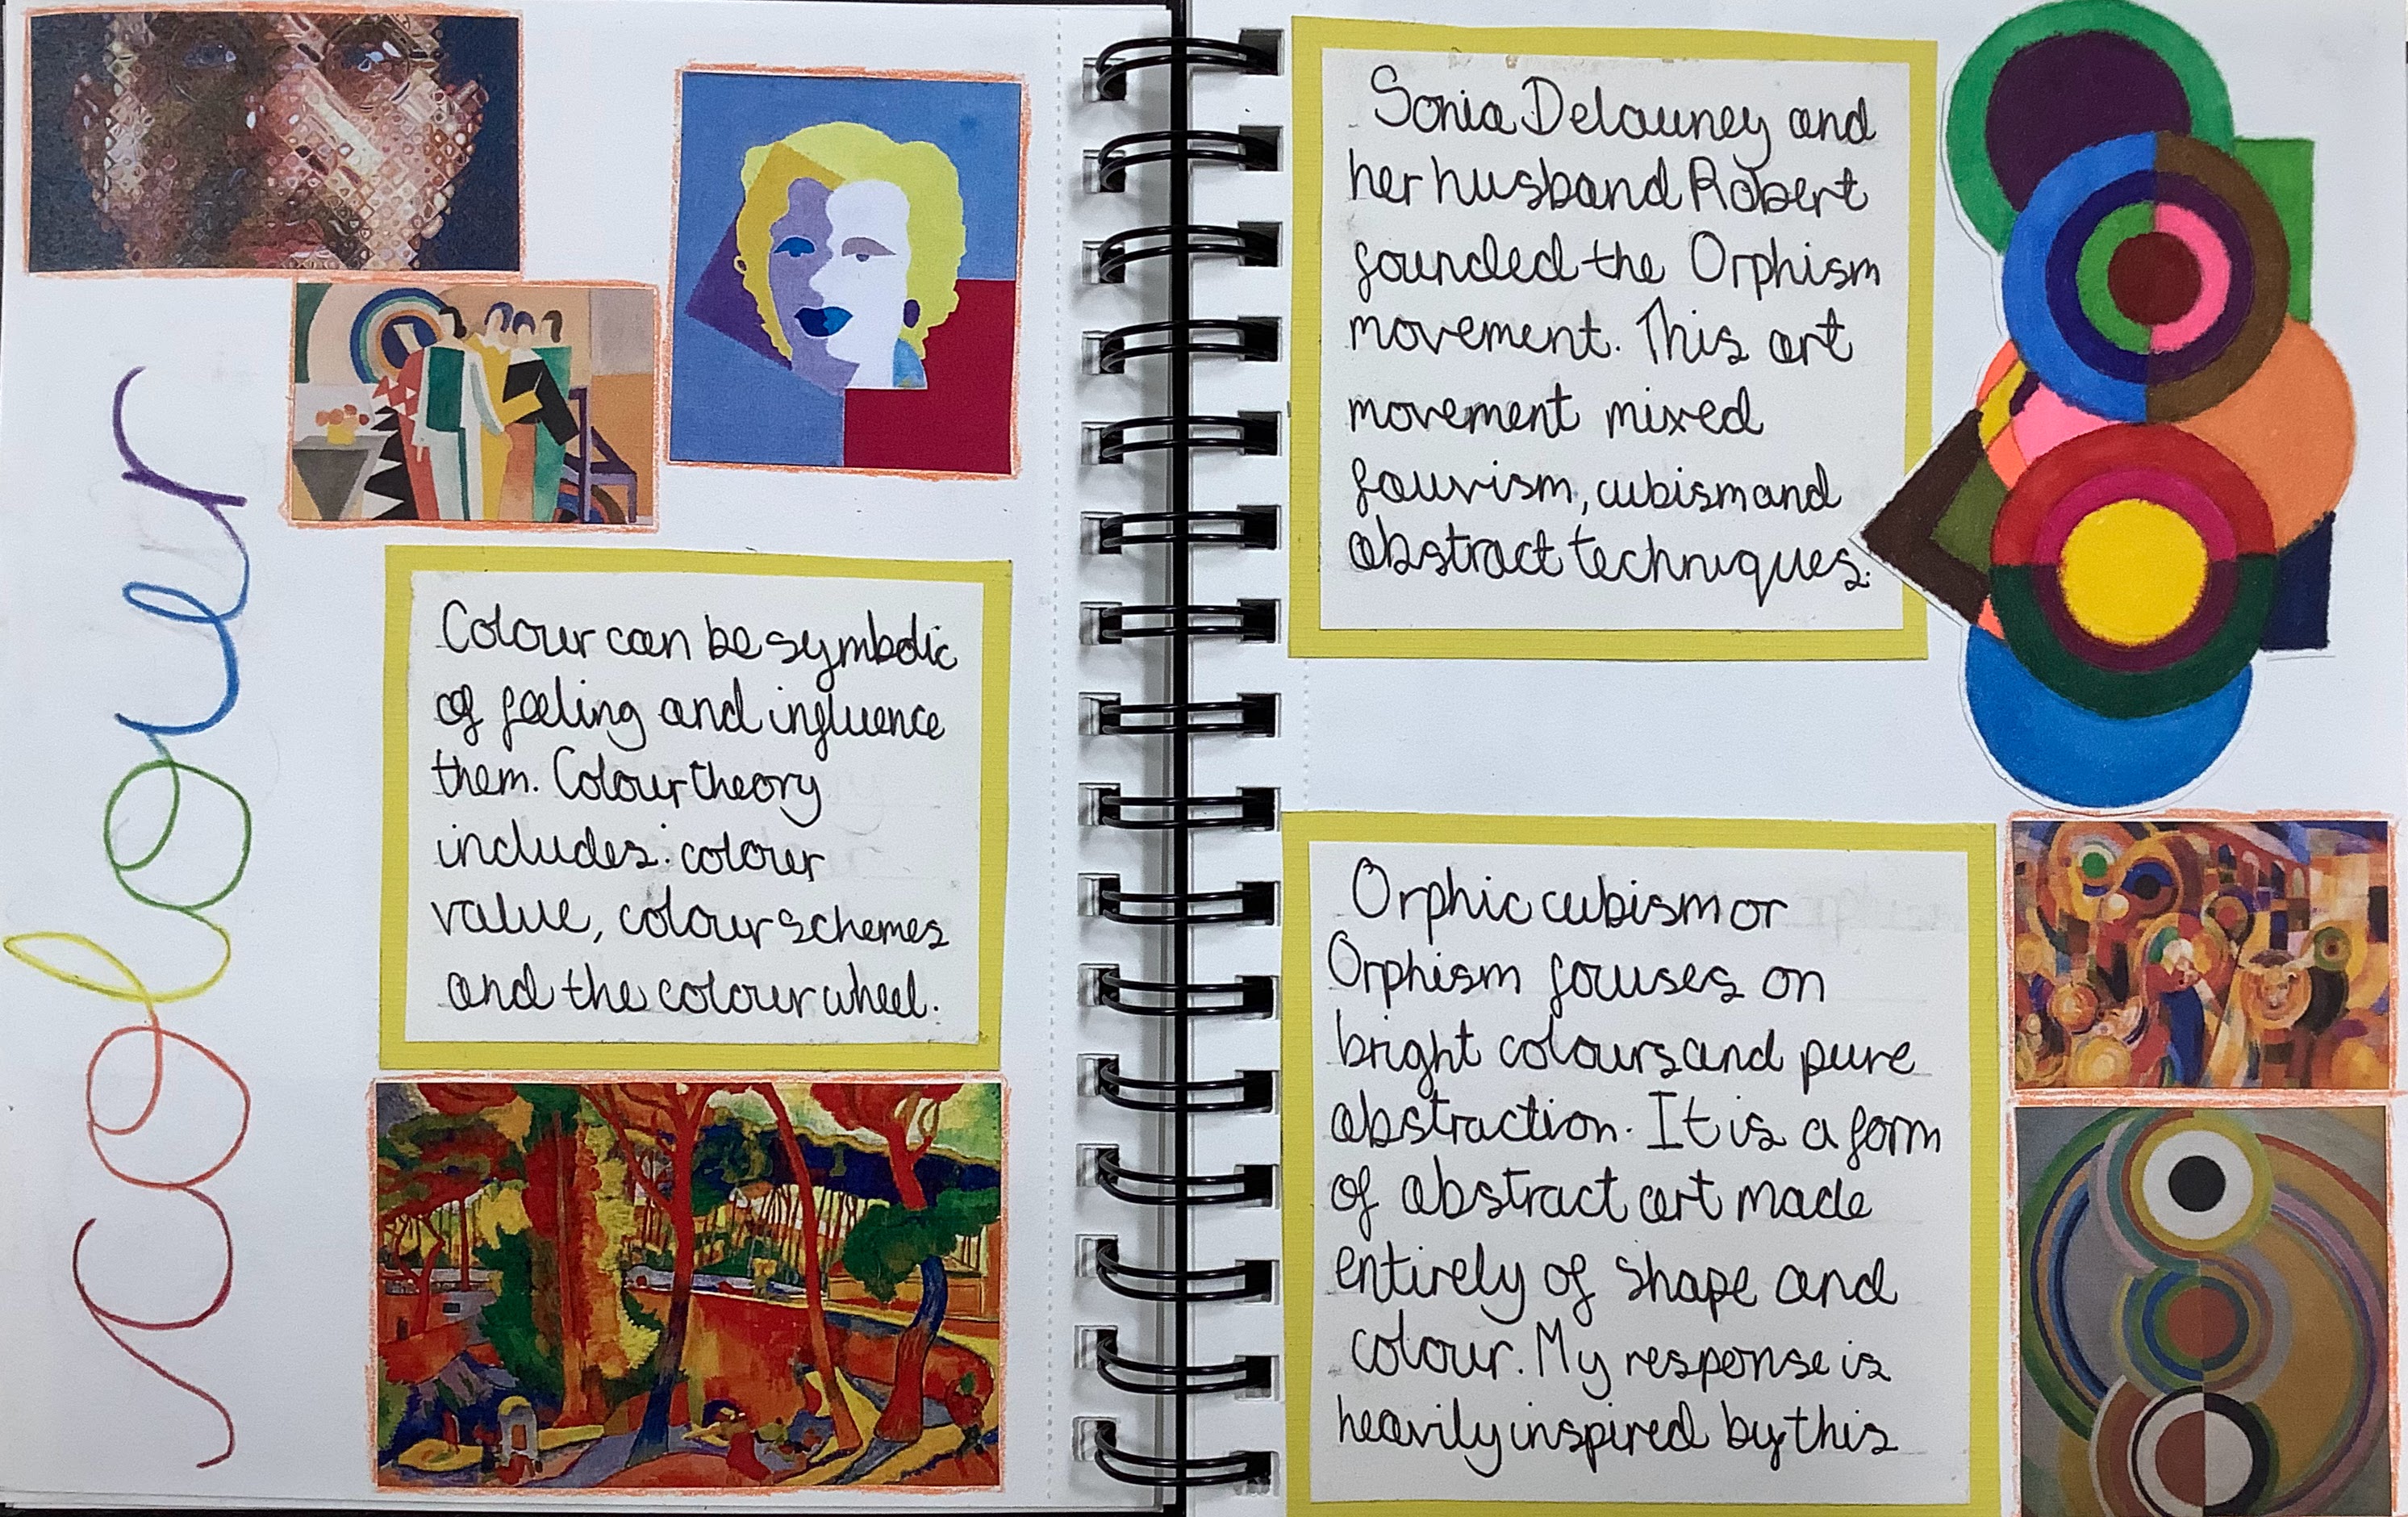 colour
Colour can be symbolic
of feeling and influence
them. Colour theory
includes: colour
value, colour schemes
and the colour wheel.
Sonia Delauney and
her husband Robert
founded the Orphism
movement. This art
movement mixed
fauvism, cubism and
abstract techniques.
Orphic cubism or
Orphism focuses on
bright colours and pure
abstraction. It is a form
of abstract art made
entirely of shape and
colour. My response is
heavily inspired by this